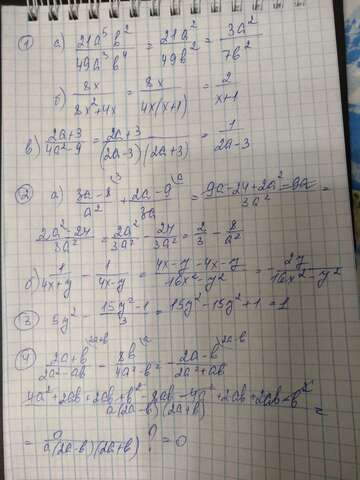 ① а) 21a⁵b²/49a³b⁴ = 21a²/49b² = 3a²/7b²
б) 8x/8x²+4x = 8x/4x(x+1) = 2/x+1
в) 2a+3/4a²-9 = 2a+3/(2a-3)(2a+3) = 1/2a-3
② а) 3a-8/a² + 2a-9/3a = 9a-24+2a²-9a/3a² =
2a²-24/3a² = 2a²/3a² - 24/3a² = 2/3 - 8/a²
б) 1/4x+y - 1/4x-y = 4x-y-4x-y/16x²-y² = - 2y/16x²-y²
③ 5y² - 15y²-1/3 = 15y²-15y²+1 = 1
④ 2a+b/2a²-ab - 8b/4a²-b² - 2a-b/2a²+ab
4a²+2ab+2ab+b²-8ab-4a²+2ab+2ab-b²/a(2a-b)(2a+b) =
= 0/a(2a-b)(2a+b) ? = 0